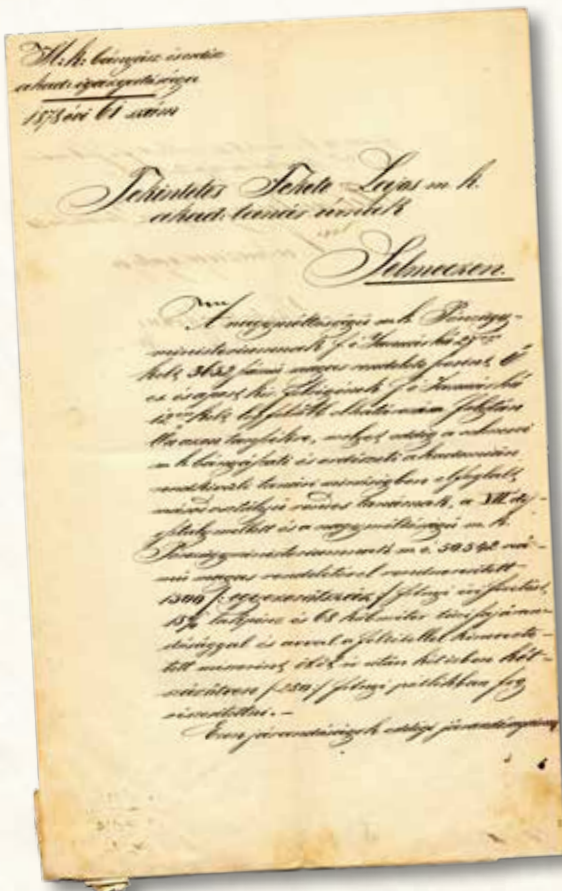 M. k. bányász és erdész
akad. igazgatósága
1878 évi 61 szám
Tekintetes Fekete Lajos m. k.
akad. tanár úrnak
Selmeczen.
A nagyméltóságú m. k. Pénzügy-
ministeriumnak f. é. Január hó
kelt, 3632 számú magas rendelete szerint, Ő
cs. és apost. kir. Felségének f. é. Január hó
12én kelt legfelsőbb elhatározása folytán
azon tanszékre, melyet eddig a selmeczi
m. k. bányászati és erdészeti akadémián
rendkívüli tanári minőségben elfoglalt,
másod osztályú rendes tanárnak, a VII. di-
mellett és a nagyméltóságú m. k.
Pénzügyministeriumnak m. é. 50342 szá-
mú magas rendeletével rendszeresített
1500 f. egyezerötszáz f. évi fizetéssel,
és 68 köbméter tűzifajáran-
dósággal és azzal a feltétellel kinevezte-
tett év után
/250/ pótlékban fog
részesíttetni. —
Ezen járandóságok eddigi